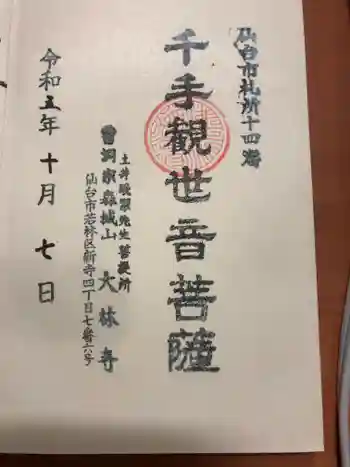 仙台市札所十四番
千手観世音菩薩
土井晩翠先生菩提所
曹洞宗森城山 大林寺
仙台市若林区新寺四丁目七番六号
令和五年 十月 七日